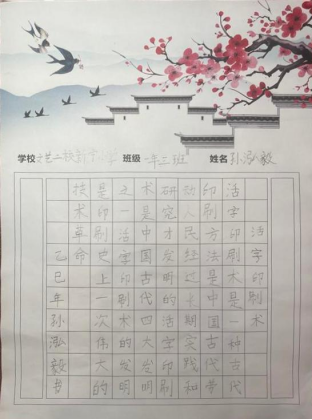 学校 二校 班级 一年二班 姓名 孙泓毅
活字印刷术
活字印刷术是一种古代
印刷方法是中国古代劳
动人民经过长期实践和
研究才发明的活字印刷
术是中国古代四大发明
之一活字印刷术的发明
是印刷史上一次伟大的
技术革命
乙巳年孙泓毅书